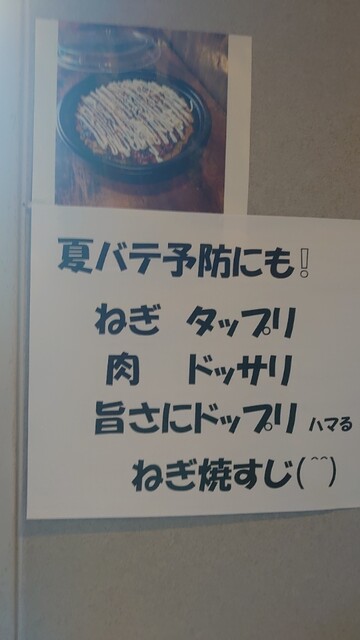 夏バテ予防にも!
ねぎ タップリ
肉 ドッサリ
旨さにドップリ ハマる
ねぎ焼すじ(^^)